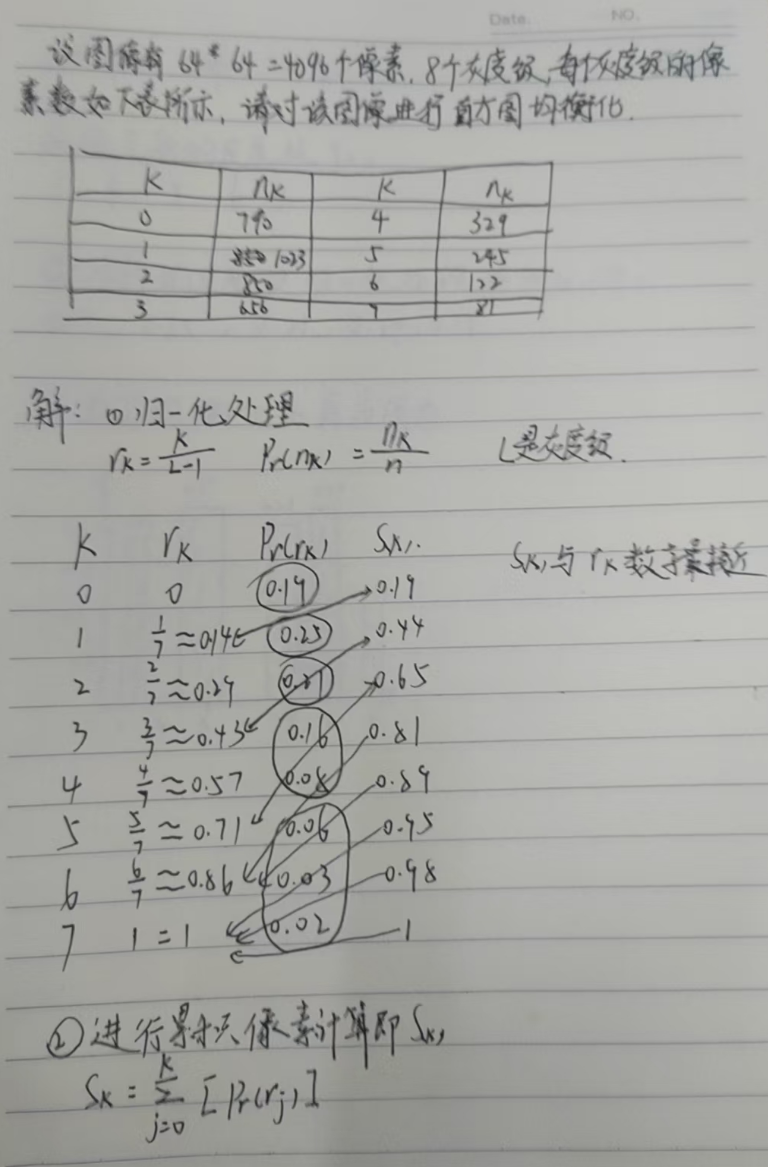 Date. NO.
设图像有 64*64=4096个像素, 8个灰度级, 每个灰度级的像
素数如下表所示, 请对该图像进行直方图均衡化.
K nK K nK
0 790 4 329
1 1023 5 245
2 850 6 122
3 656 7 81
解: ①归一化处理
rK=K/(L-1) Pr(nK)=nK/n L是灰度级.
K rK Pr(rK) SK,.
0 0 0.19 0.19
1 1/7≈0.14 0.25 0.44
2 2/7≈0.29 0.21 0.65
3 3/7≈0.43 0.16 0.81
4 4/7≈0.57 0.08 0.89
5 5/7≈0.71 0.06 0.95
6 6/7≈0.86 0.03 0.98
7 1=1 0.02 1
SK,与rK数字最接近
②进行累积像素计算即SK,
SK=∑[Pr(rj)]
K
j=0